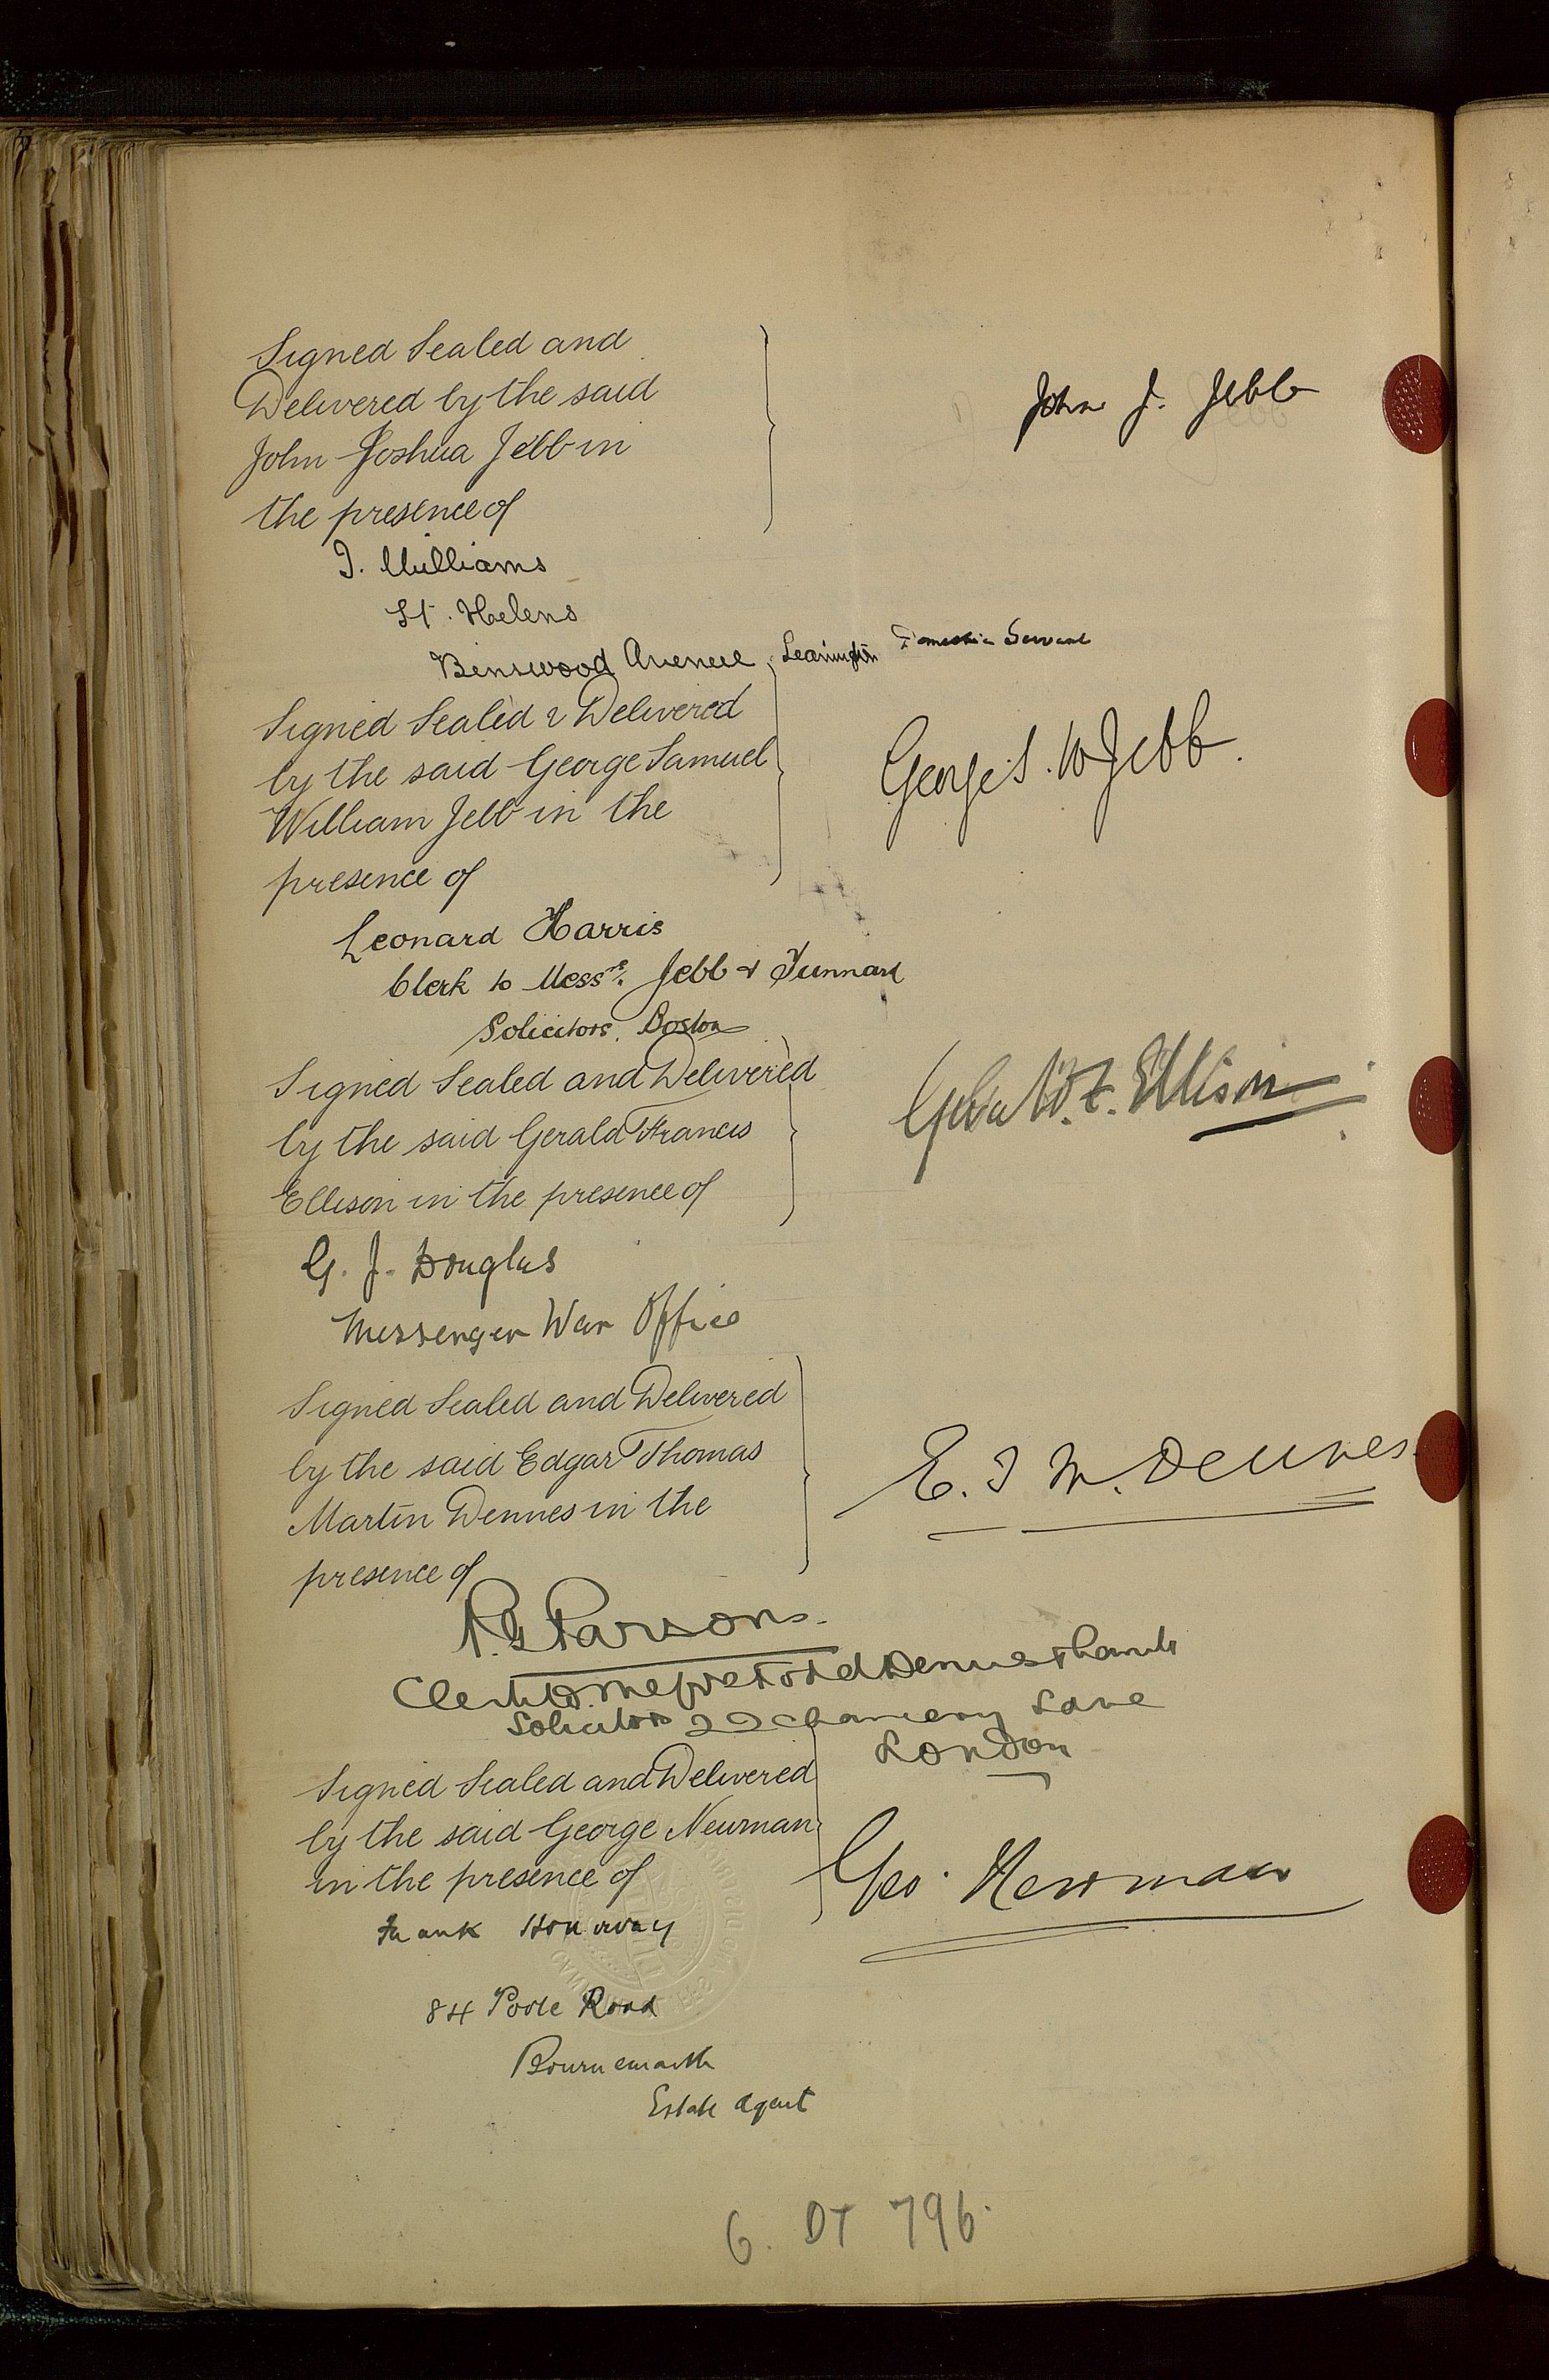 Signed Sealed and
Delivered by the said
John Joshua Jebb in
the presence of
John J. Jebb
J. Williams
St. Helens
Binswood Avenue, Leamington Domestic Servant
Signed Sealed & Delivered
by the said George Samuel
William Jebb in the
presence of
George S. W Jebb.
Leonard Harris
Clerk to Messrs. Jebb & Tunnard
Solicitors, Boston
Signed Sealed and Delivered
by the said Gerald Francis
Ellison in the presence of
Gerald F. Ellison
G. J. Douglas
Messenger War Office
Signed Sealed and Delivered
by the said Edgar Thomas
Martin Dennes in the
presence of
E. T M. Dennes.
Parsons.
Clerk to Dennes &
Solicitors 22 Chancery Lane
London
Signed Sealed and Delivered
by the said George Newman
in the presence of
Geo. Newman
Frank
84 Poole Road
Bournemouth
Estate Agent
6. DT 796.